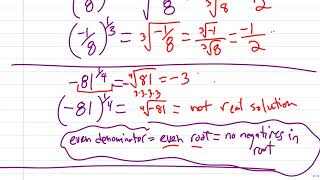 (-1/8)^(1/3) = ∛(-1/8) = ∛-1/∛8 = -1/2
-81^(1/4) = -∜81 = -3
3·3·3·3
(-81)^(1/4) = ∜-81 = not real solution
even denominator = even root = no negatives in
root